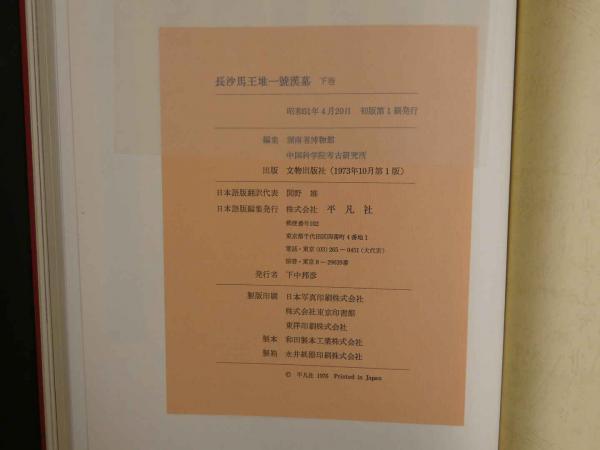 長沙馬王堆一號漢墓 下巻
昭和51年4月20日 初版第1刷発行
編集 湖南省博物館
中国科学院考古研究所
出版 文物出版社（1973年10月第1版）
日本語版翻訳代表 関野 雄
日本語版編集発行 株式会社 平凡社
郵便番号102
東京都千代田区四番町4番地1
電話・東京(03)265—0451(大代表)
振替・東京8—29639番
発行名 下中邦彦
製版印刷 日本写真印刷株式会社
株式会社東京印書館
東洋印刷株式会社
製本 和田製本工業株式会社
製箱 永井紙器印刷株式会社
© 平凡社 1976 Printed in Japan